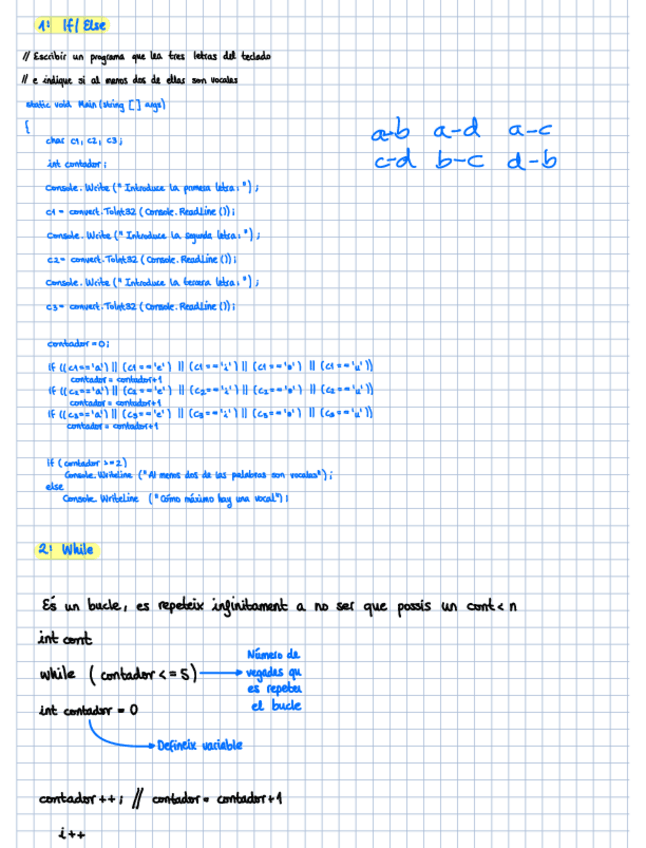 1: If/Else
// Escribir un programa que lea tres letras del teclado
// e indique si al menos dos de ellas son vocales
static void Main (string [] args)
{
a-b a-d a-c
c-d b-c d-b
char c1, c2, c3;
int contador;
Console.Write (" Introduce la primera letra: ");
c1 = convert.ToInt32 (Console.ReadLine ());
Console.Write (" Introduce la segunda letra: ");
c2= convert.ToInt32 (Console.ReadLine ());
Console.Write (" Introduce la tercera letra: ");
c3= convert.ToInt32 (Console.ReadLine ());
contador =0;
If ((c1=='a') || (c1 =='e') || (c1=='i') || (c1=='o') || (c1=='u'))
contador = contador+1
If ((c2=='a') || (c2=='e') || (c2=='i') || (c2=='o') || (c2=='u'))
contador = contador+1
If ((c3=='a') || (c3=='e') || (c3=='i') || (c3=='o') || (c3=='u'))
contador = contador+1
If (contador >=2)
Console.WriteLine ("Al menos dos de las palabras son vocales");
else
Console.WriteLine ("Cómo máximo hay una vocal");
2: While
És un bucle, es repeteix infinitament a no ser que possis un cont < n
int cont
while (contador <= 5)
Número de
vegades qu
es repeteix
el bucle
int contador = 0
Defineix variable
contador ++; // contador = contador+1
i++